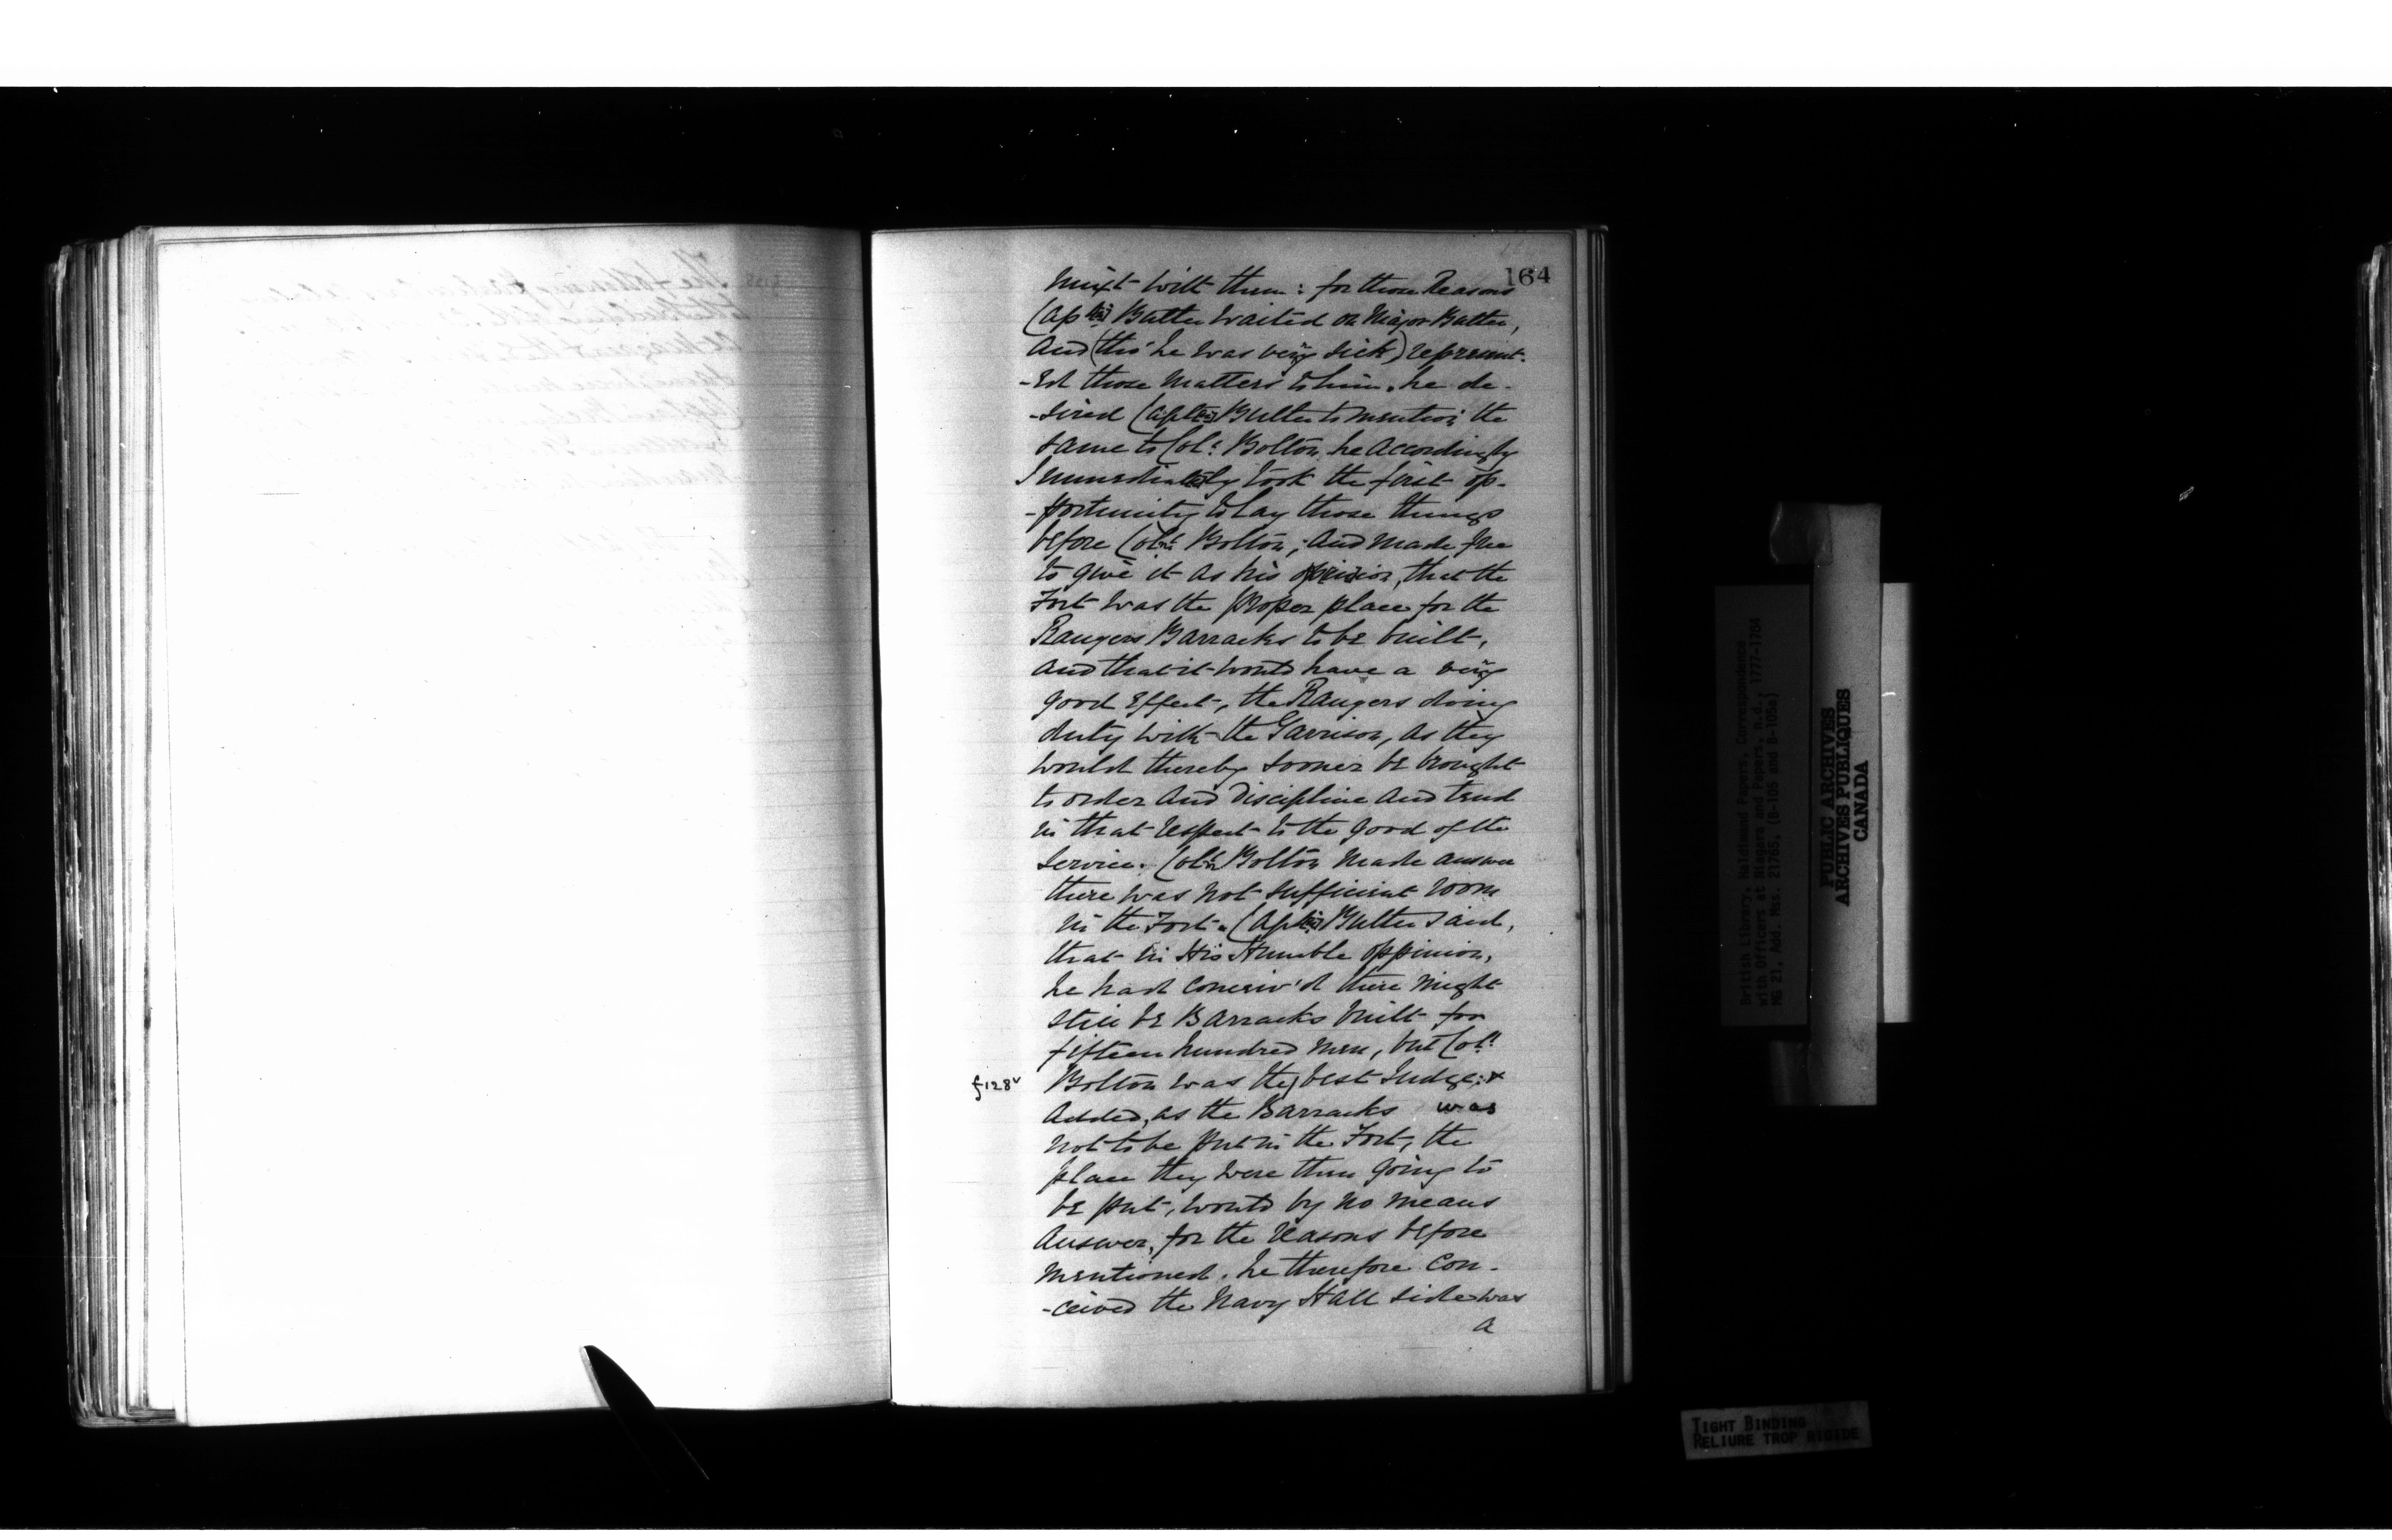 164
mixt with them: for those Reasons
Capt. Butler waited on Major Butler,
And (tho' he was very sick) represent-
-Ed those Matters to him. he de-
-sired Capt. Butler to mention the
same to Col. Bolton, he Accordingly
Immediately took the first op-
-portunity to Lay those things
before Col. Bolton, And made free
to give it as his opinion, that the
Fort was the proper place for the
Rangers Barracks to be built,
And that it would have a very
good Effect, the Rangers doing
duty with the Garrison, as they
would thereby sooner be brought
to order And Discipline And tend
in that respect to the good of the
Service. Col. Bolton made answer
there was not sufficient room
in the Fort. Capt. Butler said,
that in His Humble oppinion,
he had conceiv'd there might
still be Barracks built for
fifteen hundred men, but Col.
f128v Bolton was the best Judge; &
Added, as the Barracks was
not to be put in the Fort, the
place they were then going to
be put, would by no means
Answer, for the reasons before
mentioned. he therefore con-
-ceived the Navy Hall side was
a
British Library, Haldimand Papers, Correspondence
with Officers at Niagara and Papers, n.d., 1777-1784
MG 21, Add. Mss. 21765, (B-105 and B-105a)
PUBLIC ARCHIVES
ARCHIVES PUBLIQUES
CANADA
TIGHT BINDING
RELIURE TROP RIGIDE